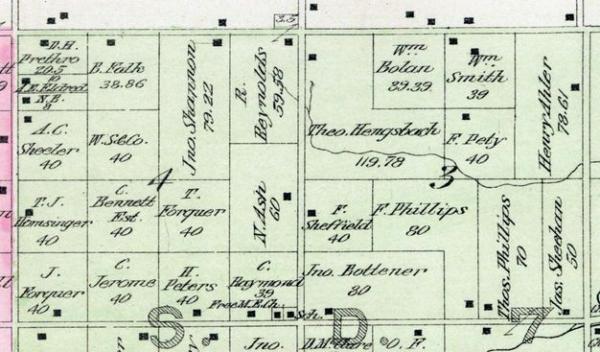 3.5
D.H.
Prethro
20.5
A.E. Eldred
N.B.
8
B. Folk
38.86
Jno. Shannon
79.22
R.
Reynolds
59.58
Wm
Bolan
39.39
Wm
Smith
39
Henry Ahler
78.61
A.C.
Sheeler
40
W.S.&Co.
40
Theo. Hengsbach
119.78
F. Pety
40
4
3
T.J.
Homsinger
40
C.
Bennett
Est.
40
T.
Forquer
40
N. Ash
60
F.
Sheffield
40
F. Phillips
80
Thos. Phillips
70
Jas. Sheehan
50
J.
Forquer
40
C.
Jerome
40
H.
Peters
40
C.
Raymond
39
Free M.E. Ch.
Sch.
Jno. Bottener
80
S
D
7
Jno.
O. F.